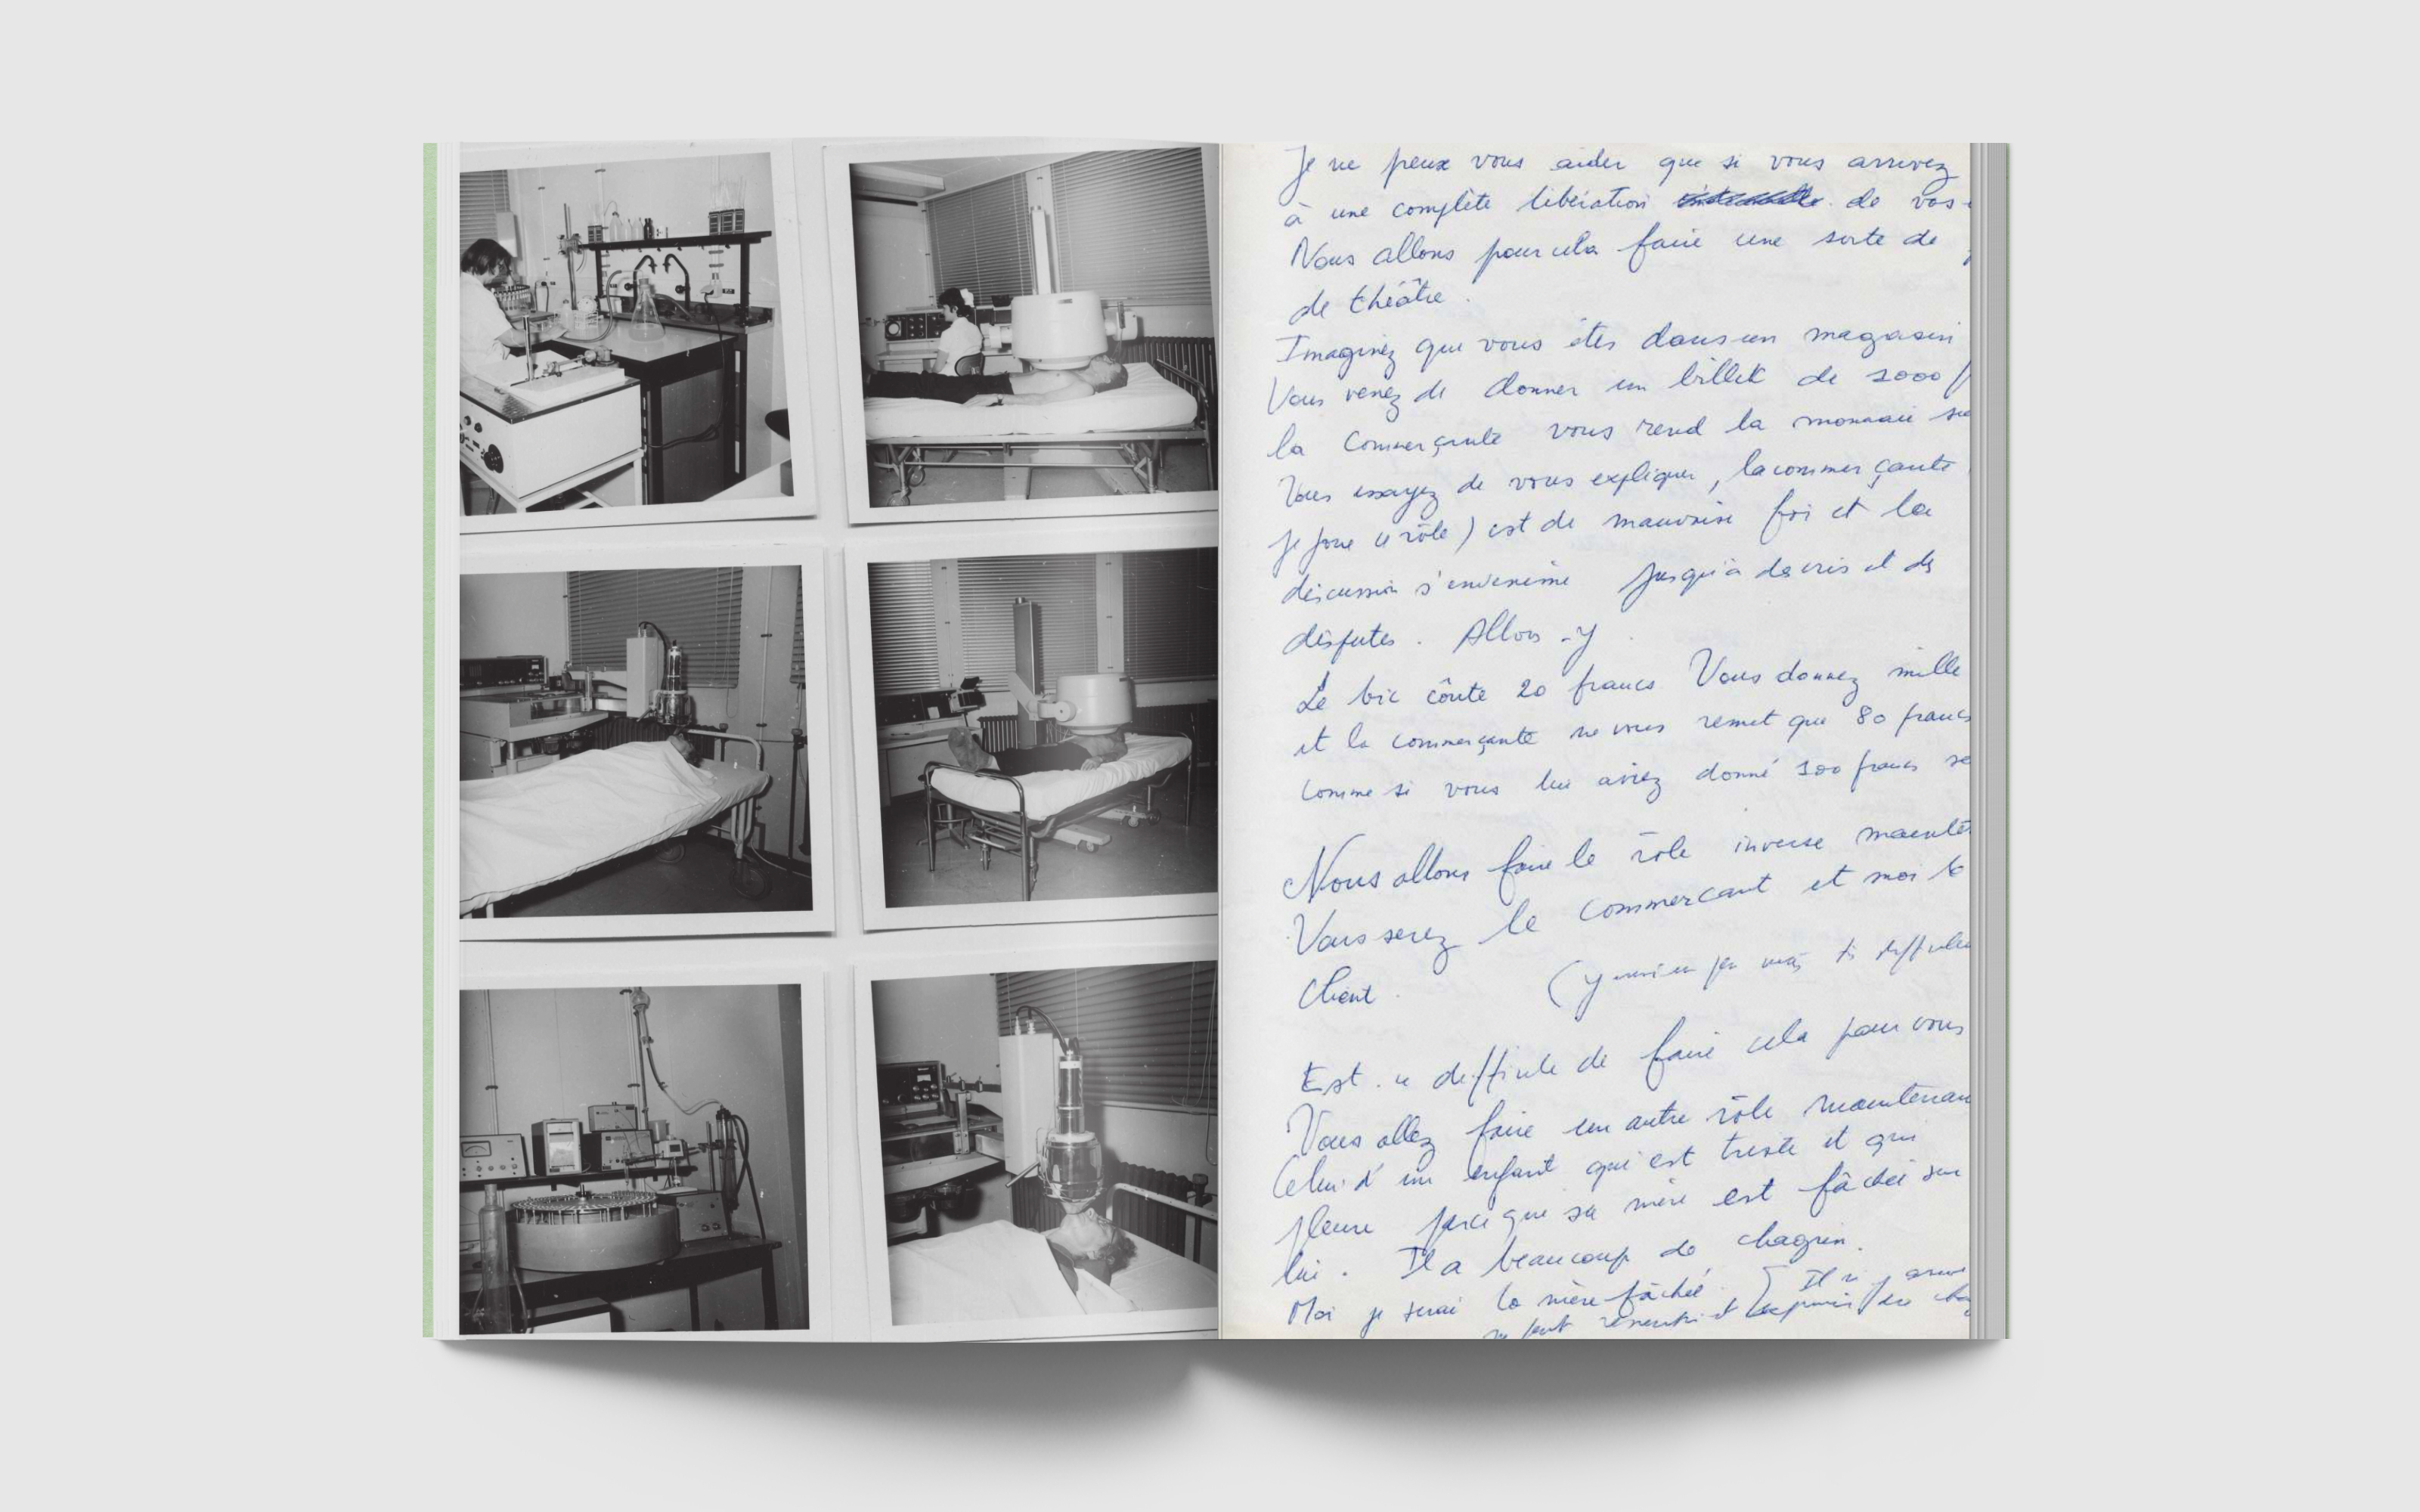 Je ne peux vous aider que si vous arrivez
à une complète libération de vos
Nous allons pour cela faire une sorte de
de théâtre.
Imaginez que vous êtes dans un magasin
Vous venez de donner un billet de 1000 f
la commerçante vous rend la monnaie su
Vous essayez de vous expliquer, la commerçante
je joue ce rôle) est de mauvaise foi et la
discussion s'envenime jusqu'à des cris et des
disputes. Allons-y.
Le bic côute 20 francs Vous donnez mille
et la commerçante ne vous remet que 80 francs
comme si vous lui aviez donné 100 francs se
Nous allons faire le rôle inverse mainte
Vous serez le commercant et moi le
client.
Est-ce difficile de faire cela pour vous
Vous allez faire un autre rôle maintenan
Celui d'un enfant qui est triste et qui
pleure parce que sa mère est fâchée sur
lui. Il a beaucoup de chagrin.
Moi je serai la mère fâchée.